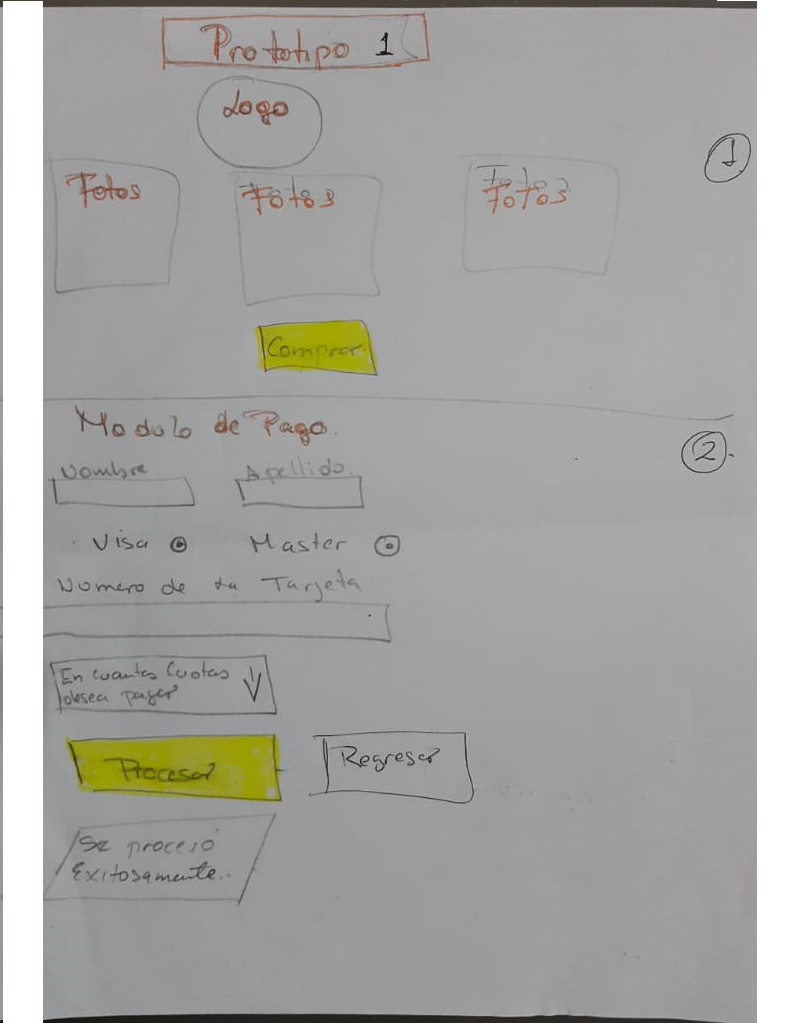 Prototipo 1
Logo
1
Fotos
Fotos
Fotos
Comprar.
Modulo de Pago.
2.
Nombre
Apellido.
Visa
Master
Numero de tu Tarjeta
En cuantas Cuotas
desea pagar
Procesar
Regresar
Se procesó
Exitosamente..